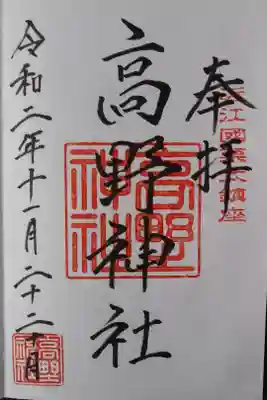 奉拝
近江國栗太鎮座
高野神社
高野神社
令和二年十一月二十二日
高野神社